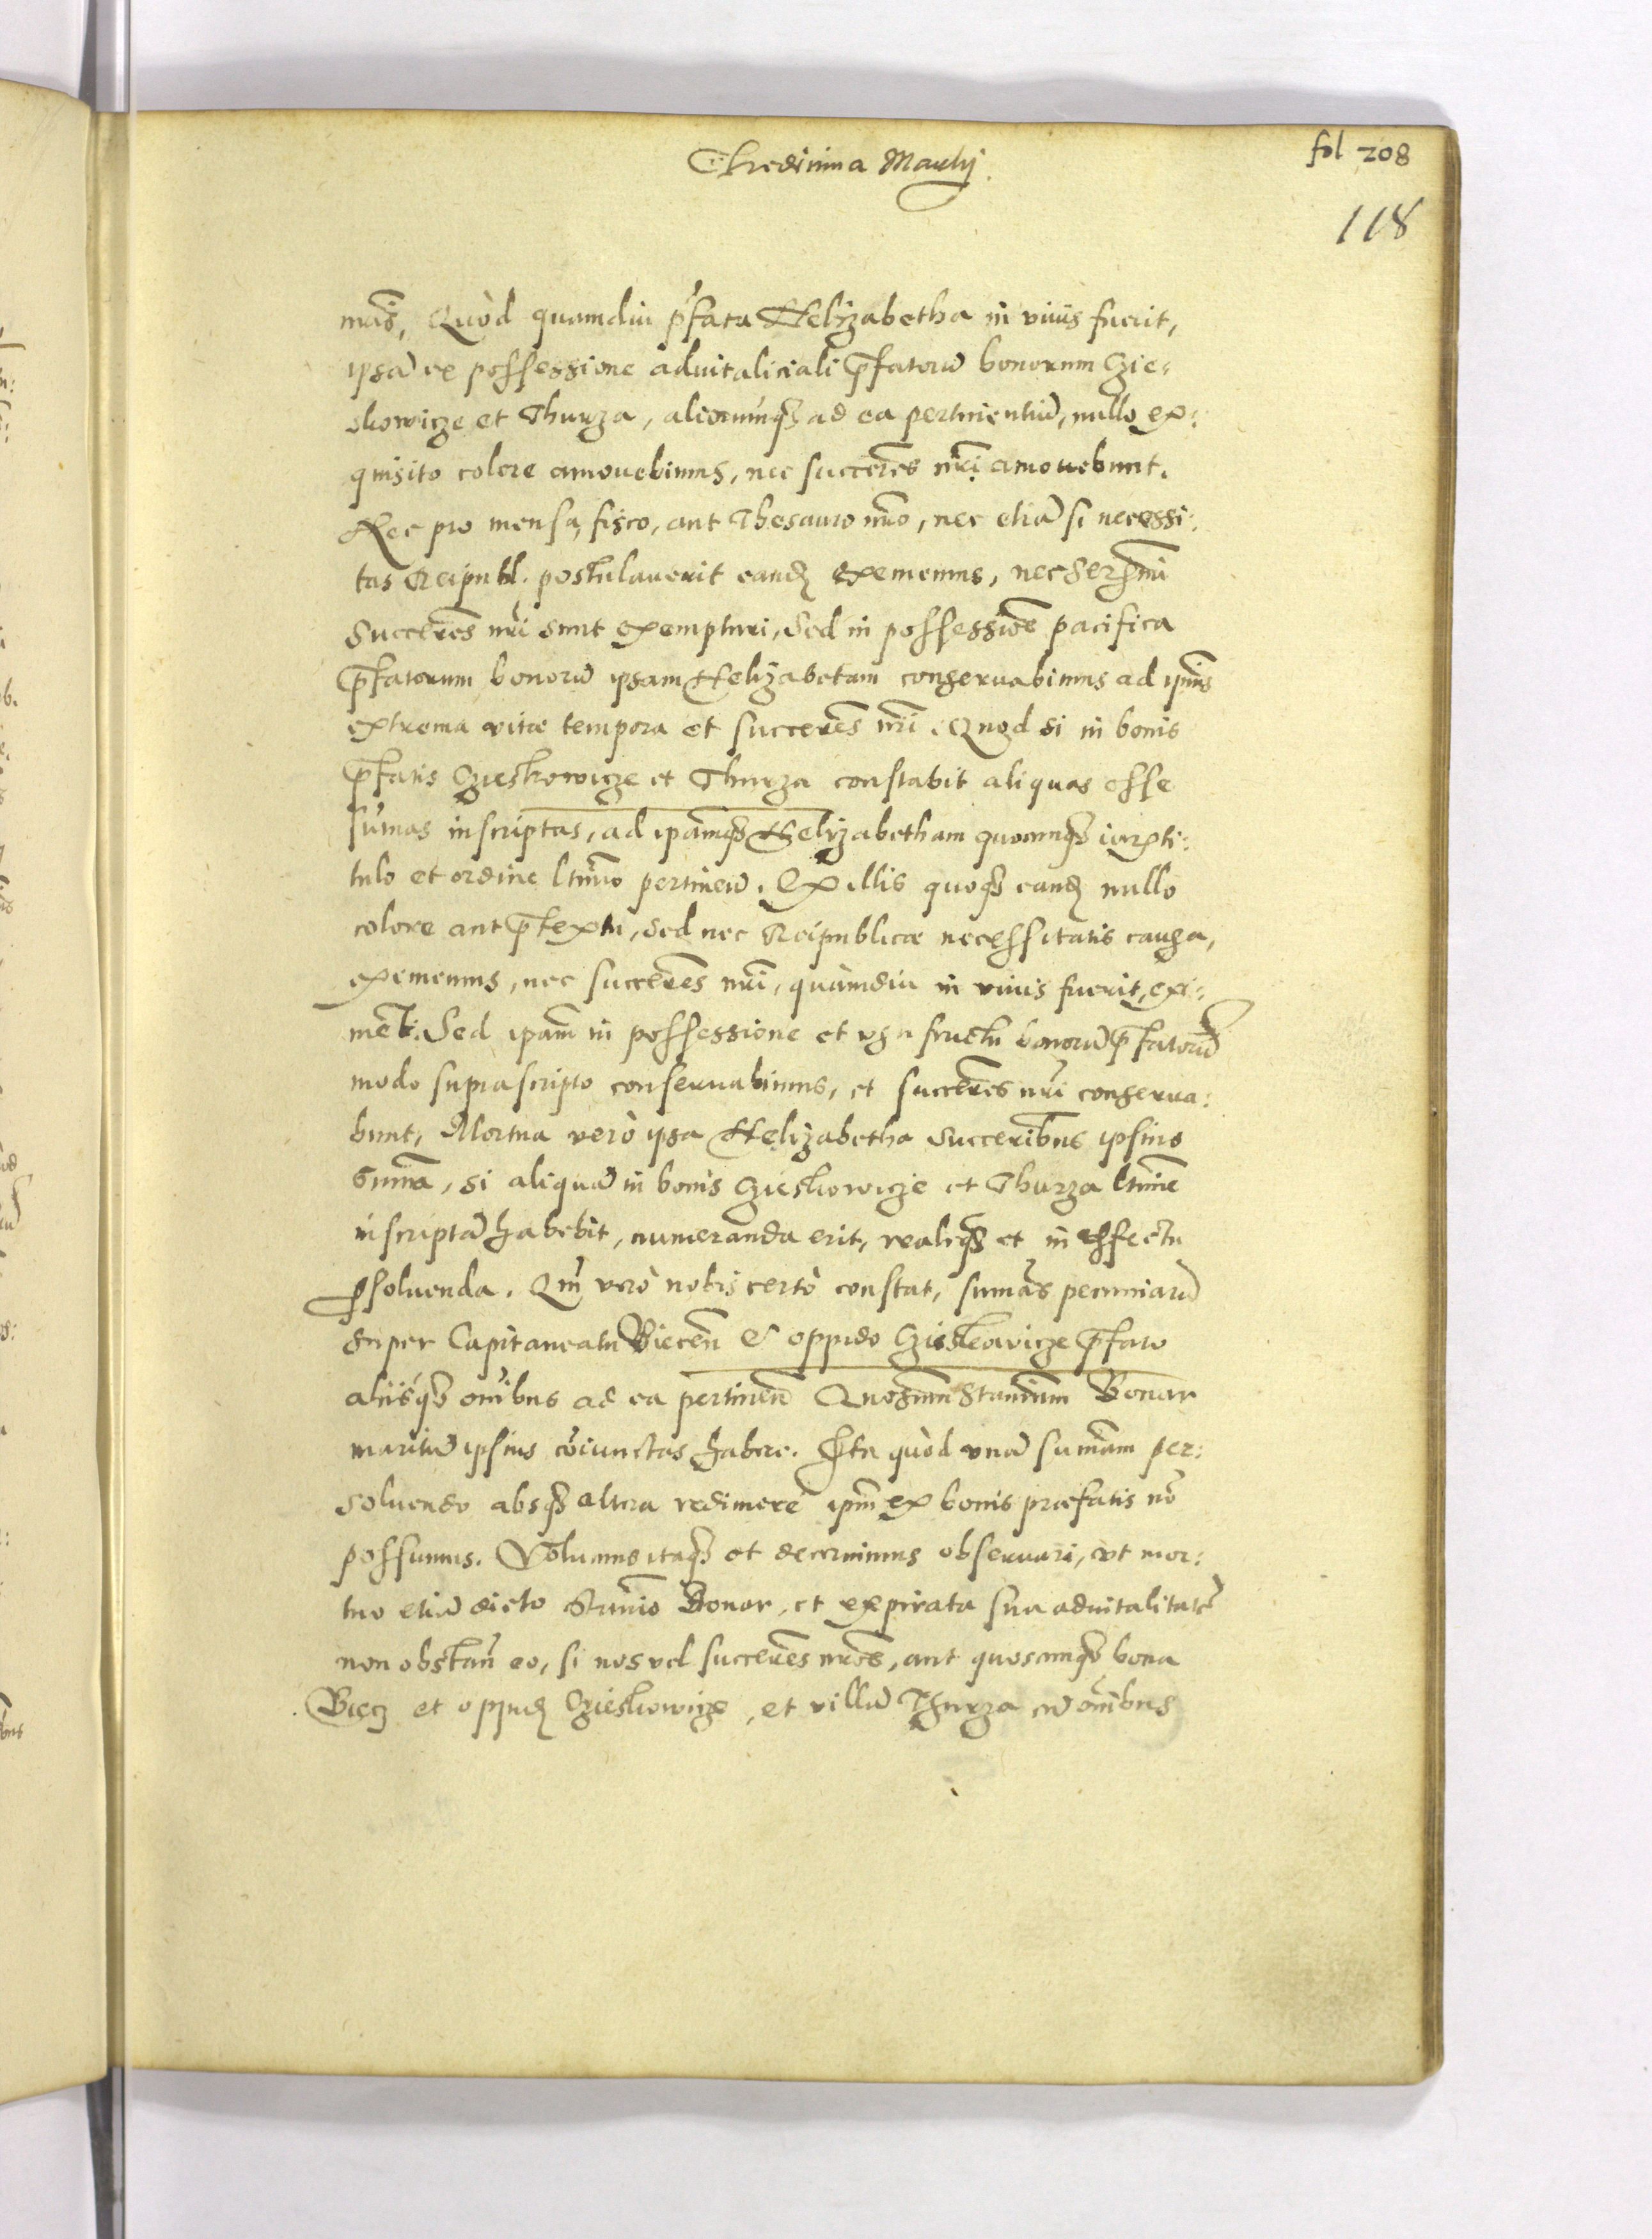 Thredicima Martij.
fol 208
118
māis, Quòd quamdiu p̄fata Helizabetha in viuis fuerit,
ipsā ex possessione aduitaliciali p̄fatorū bonorum Czie-
zkowicze et Thurza, aliorumq̨ ad ea pertinentiū, nullo ex:
quisito colore amouebimus, nec succēres nr̄i amouebunt.
Nec pro mensa, fisco, aut Thesauro nr̄o, nec etiā si necessi:
tas Reipubl. postulauerit eandę eximemus, nec Serēmi
Succēres nr̄i sunt exempturi, Sed in possessiōe pacifica
p̄fatorum bonorū ipsam Helizabetam conseruabimus ad ipīus
extrema vitæ tempora et succēres nr̄i. Quod si in bonis
p̄fatis Czieskowicze et Thurza constabit aliquas esse
sūmas inscriptas, ad ipāmq̨ Helizabetham quocunq̨ iure ti:
tulo et ordine ltīmo pertineñ. Ex illis quoq̨ eandę nullo
colore aut p̄textu, Sed nec Reipublicæ necessitatis causa,
eximemus, nec succēres nr̄i, quàmdiu in viuis fuerit, exi:
mēt. Sed ipām in possessione et vsufructu bonorū p̄fatorū
modo suprascripto conseruabimus, et succēres nr̄i conserua:
bunt, Mortua verò ipsa Helizabetha Succēribus ipsius
Summa, si aliquā in bonis Czieskowicze et Thurza ltīme
inscriptā habebit, numeranda erit, realiq̨ et in effectu
ꝑsoluenda. Qm̄ verò nobis certò constat, sūmas pecuniarū
super Capitaneatu Biecen̄ et oppido Czieskowicze p̄fato
alijsq̨ omībus ad ea pertineñ Gnosum Stanīum Bonar
maritū ipsius cōiunctas habere. Ita quòd vnā summam per:
soluendo absq̨ altera redimere ipm̄ ex bonis præfatis nō
possumus. Volumus itaq̨ et decernimus obseruari, vt mor:
tuo etiā dicto Stanīo Bonar, et expirata sua aduitalitatē
non obstan̄ eo, si nos vel succēres nr̄os, aut quoscunq̨ bona
Biecz et oppidę Czieskowicze, et villā Thurza cū omībus